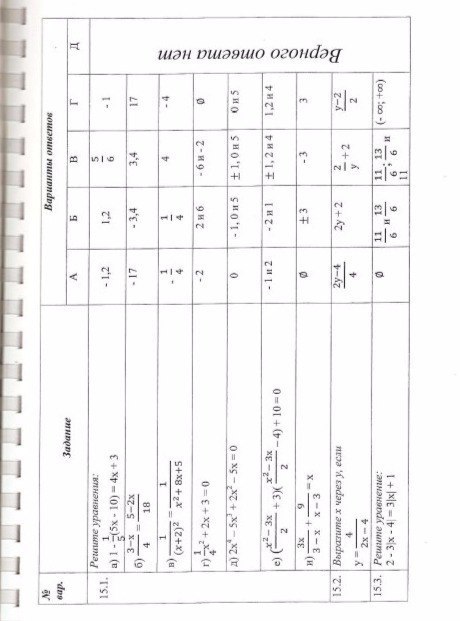 № вар.
Задание
Варианты ответов
А
Б
В
Г
Д
15.1.
Решите уравнения:
а) 1 - 1/5(5x - 10) = 4x + 3
- 1,2
1,2
5/6
- 1
б) 3−x/4 = 5−2x/18
- 17
- 3,4
3,4
17
в) 1/(x+2)² = 1/x²+8x+5
- 1/4
1/4
4
- 4
г) 1/4x² + 2x + 3 = 0
- 2
2 и 6
- 6 и - 2
∅
д) 2x⁴ - 5x³ + 2x² - 5x = 0
0
- 1, 0 и 5
± 1, 0 и 5
0 и 5
е) (x²−3x/2 + 3)(x²−3x/2 - 4) + 10 = 0
- 1 и 2
- 2 и 1
± 1, 2 и 4
1, 2 и 4
и) 3x/3−x + 9/x−3 = x
∅
± 3
- 3
3
15.2.
Выразите x через y, если
y = 4/2x−4
2y−4/4
2y + 2
2/y + 2
y−2/2
15.3.
Решите уравнение:
2 - 3|x - 4| = 3|x| + 1
∅
11/6 и 13/6
11/6; 13/6 и
11
(- ∞; +∞)
Верного ответа нет